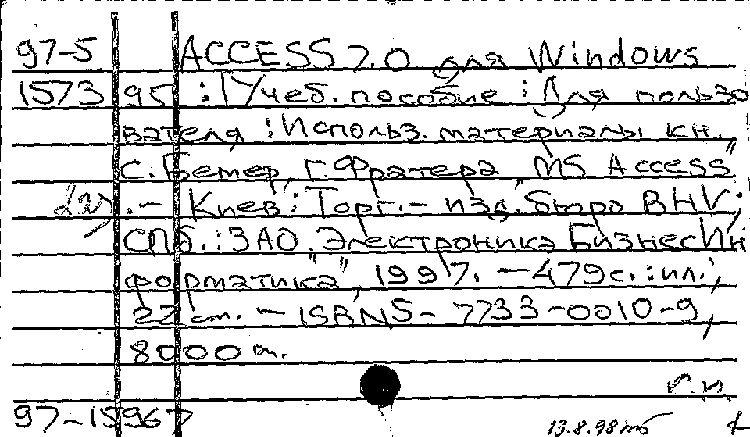 97-5 ACCESS 7.0 для Windows
1573 95 : [Учеб. пособие : Для пользо
вателя : Использ. материалы кн.
С. Бемер, Г. Фратера "MS Access"
. – Киев : Торг. – изд. бюро BHV ;
СПб. : ЗАО "Электроника БизнесИн
форматика", 1997. – 479 с. : ил. ;
22 см. – ISBN 5-7733-0010-9,
8000 э.
97-15967 13.8.98